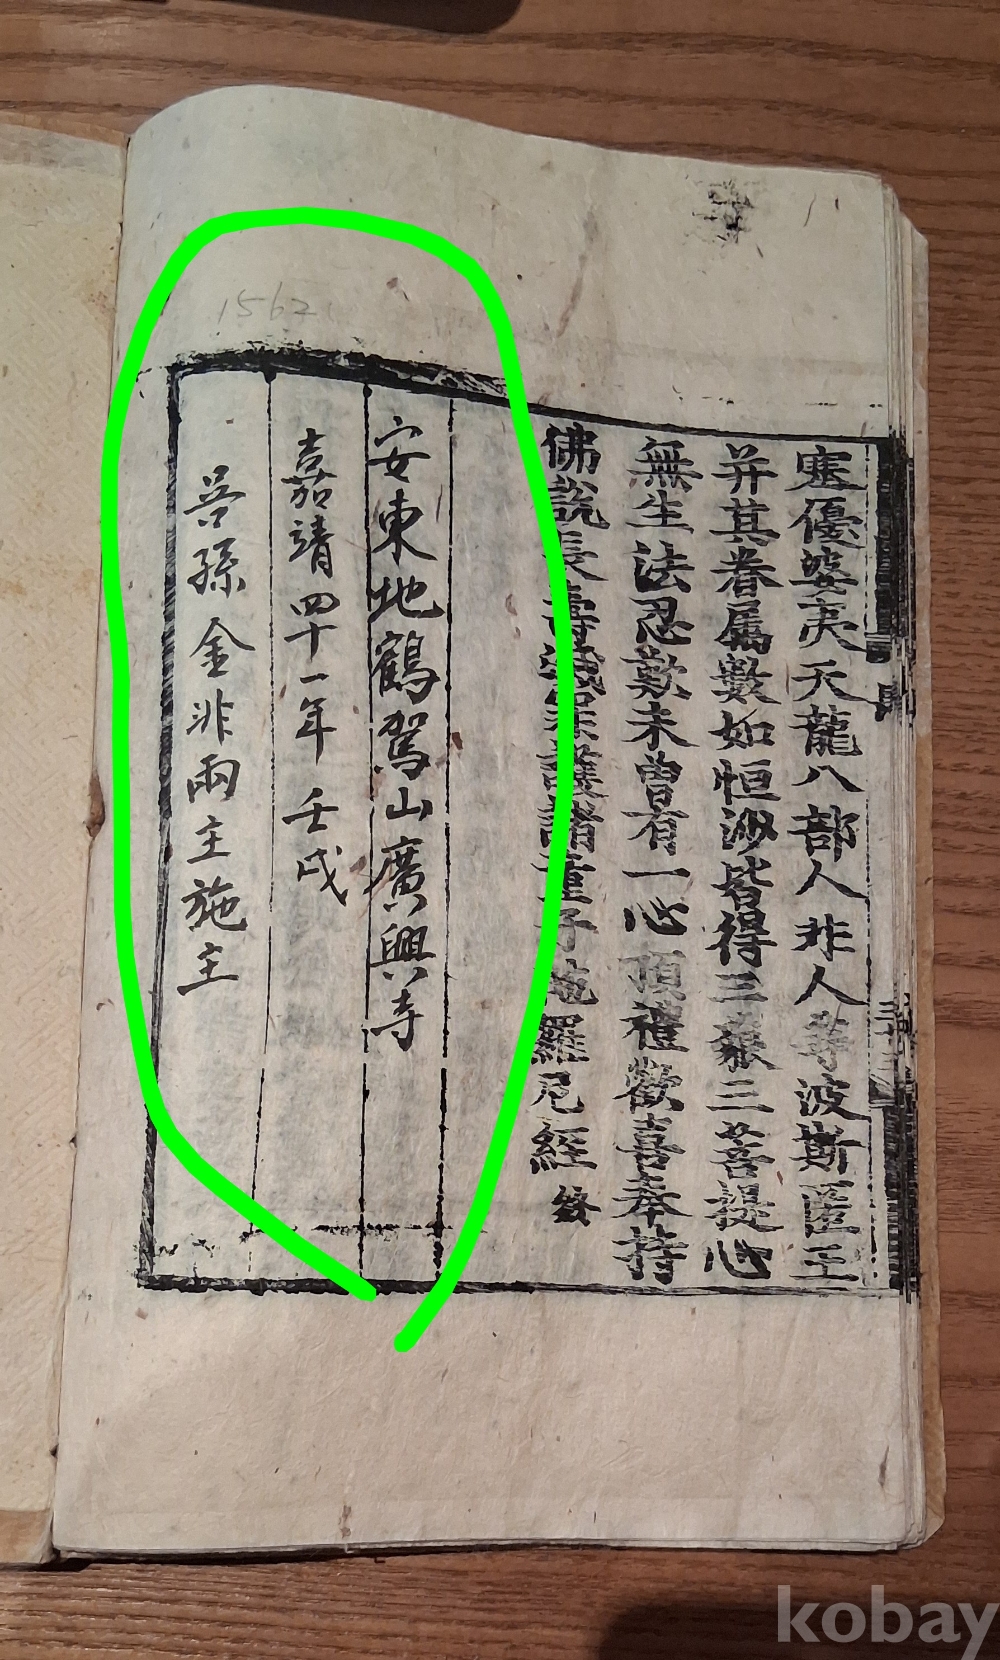 塞優婆夷天龍八部人非人等波斯匿王
并其眷属數如恒沙皆得三藐三菩提心
無生法忍歎未曾有一心頂禮歡喜奉持
佛說長壽滅罪護諸童子陁羅尼經 終
安東地鶴駕山廣興寺
嘉靖四十一年 壬戌
吾孫金非兩主施主
1562
kobay